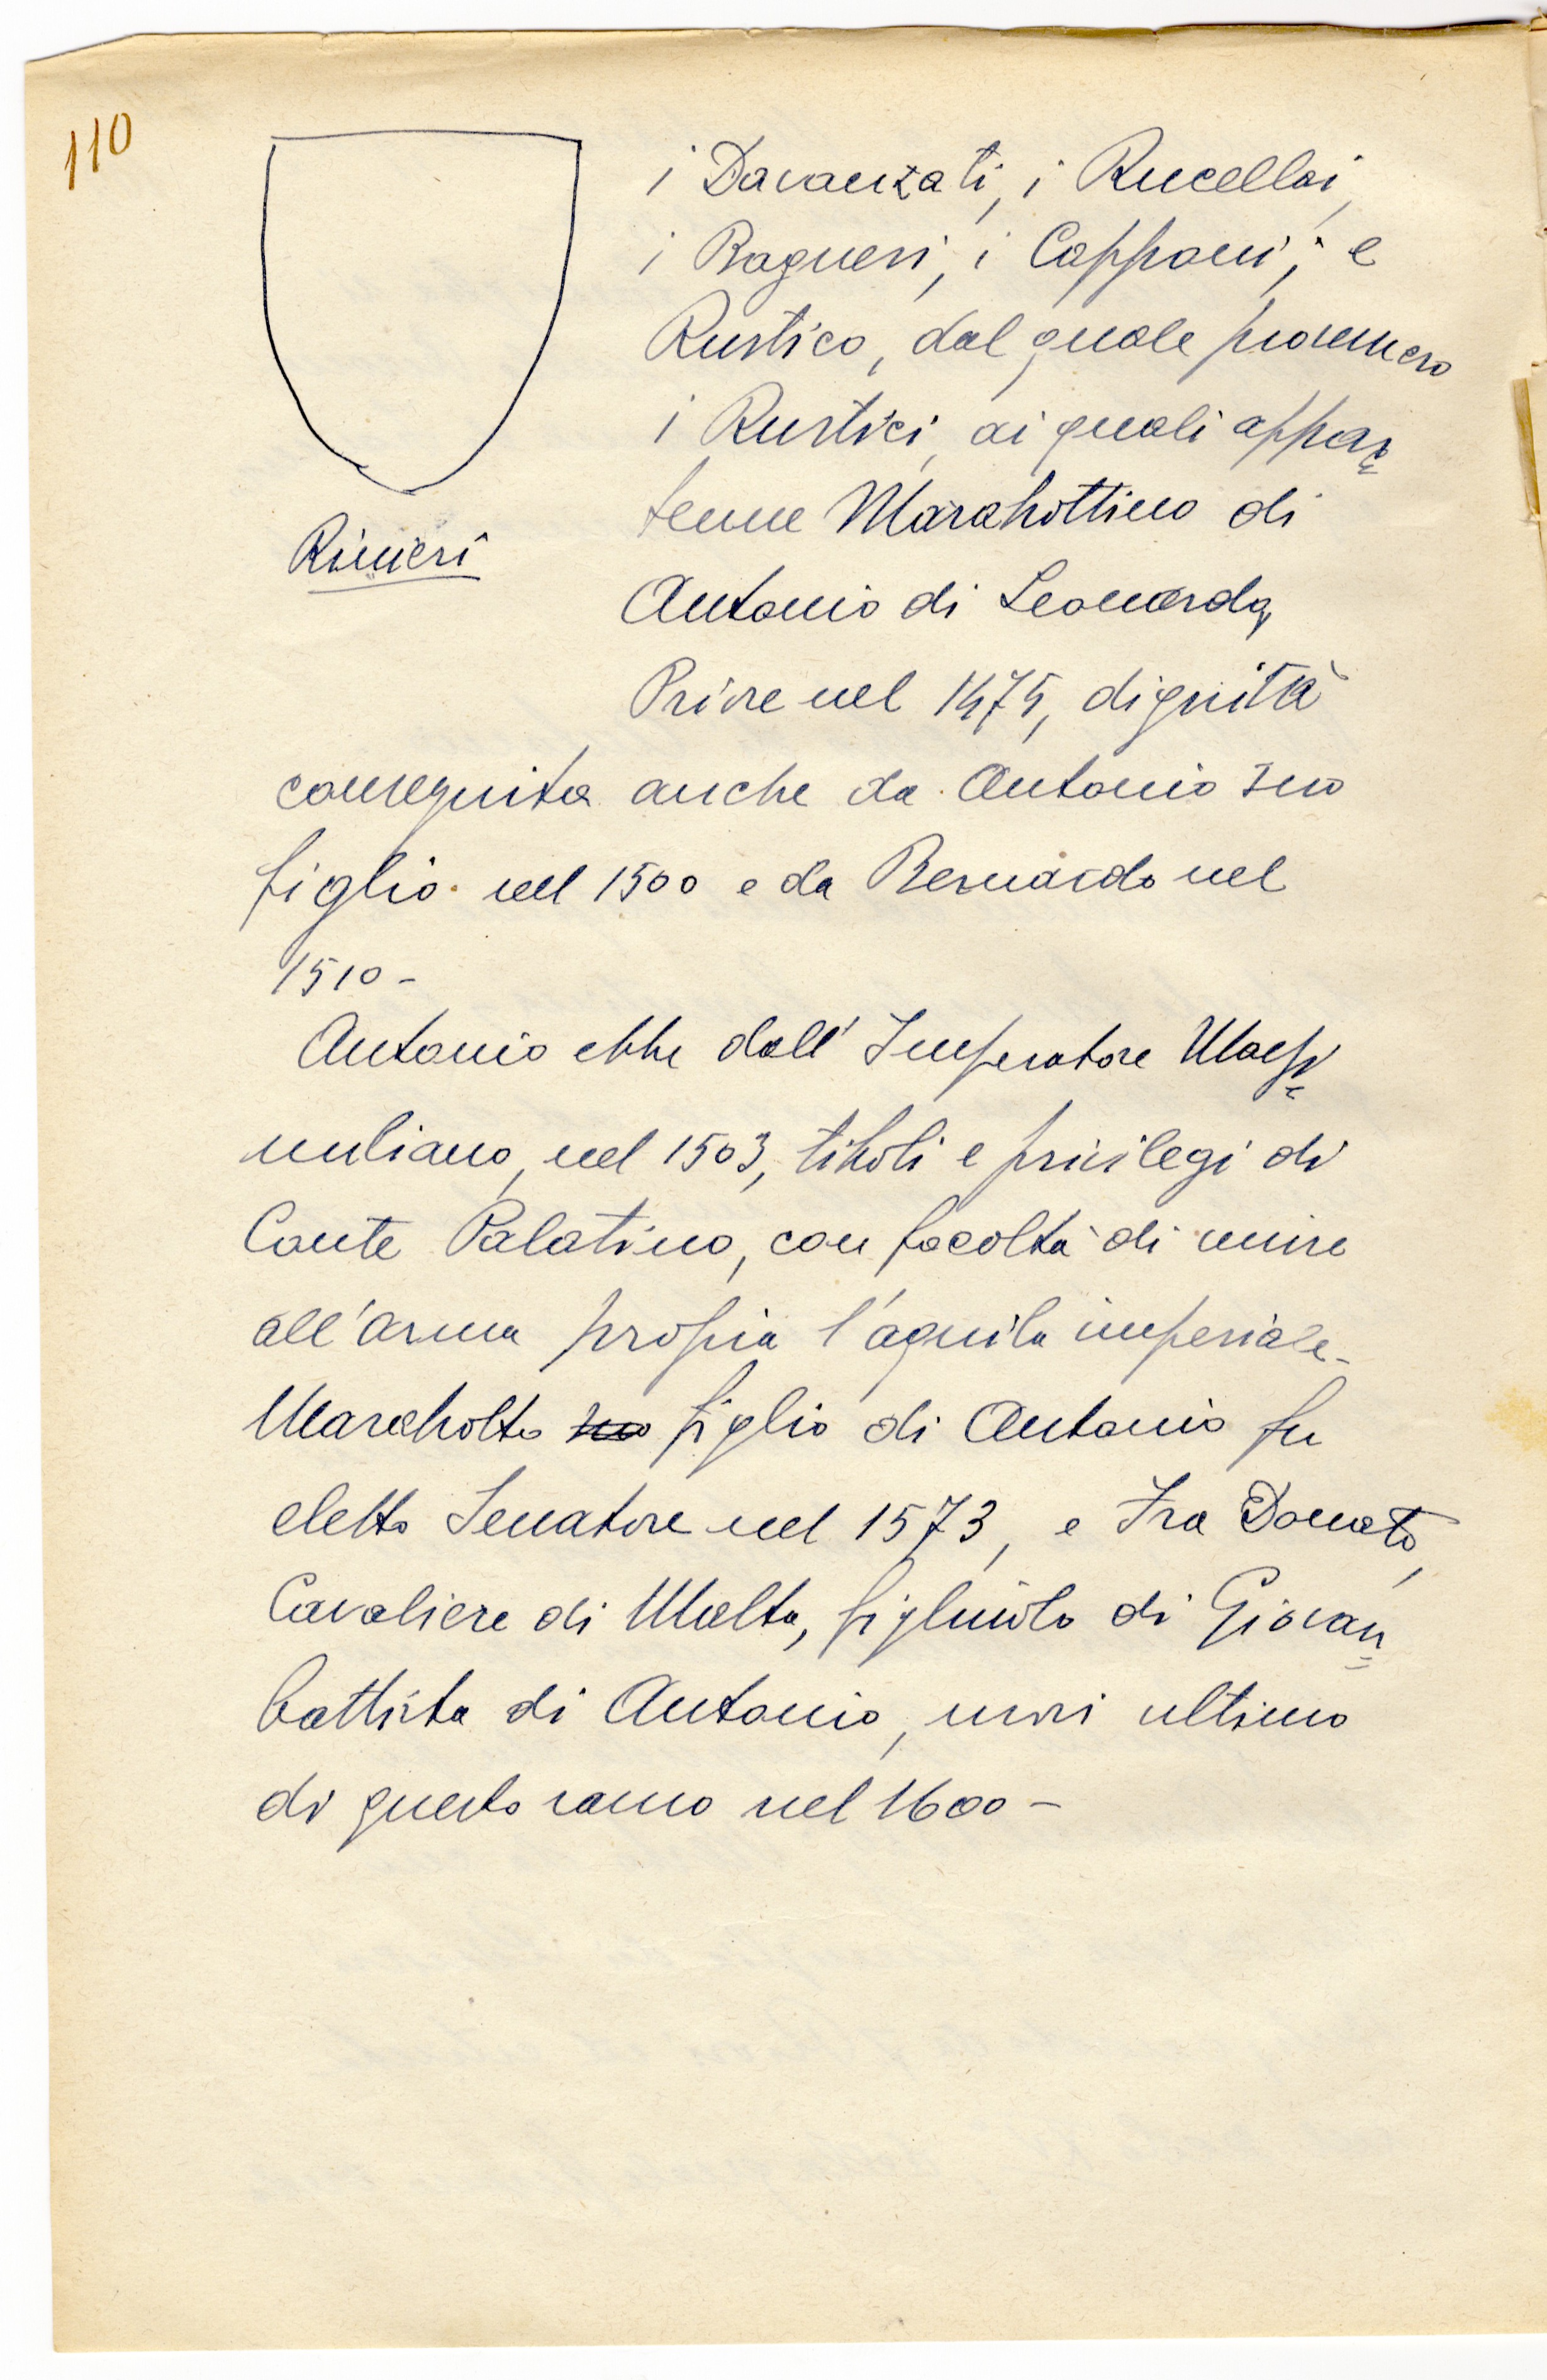 110
i Davanzati, i Rucellai,
i Ragneri, i Capponi; e
Rustico, dal quale provennero
i Rustici, ai quali appar=
tenne Marabottino di
Rinieri
Antonio di Leonardo,
Priore nel 1475, dignità
conseguita anche da Antonio suo
figlio nel 1500 e da Bernardo nel
1510 -
Antonio ebbe dall'Imperatore Massi=
miliano, nel 1503, titoli e privilegi di
Conte Palatino, con facoltà di unire
all'arma propria l'aquila imperiale -
figlio di Antonio fu
eletto Senatore nel 1573, e Fra Donato,
Cavaliere di Malta, figliuolo di Giovan=
battista di Antonio, morì ultimo
di questo ramo nel 1600 -